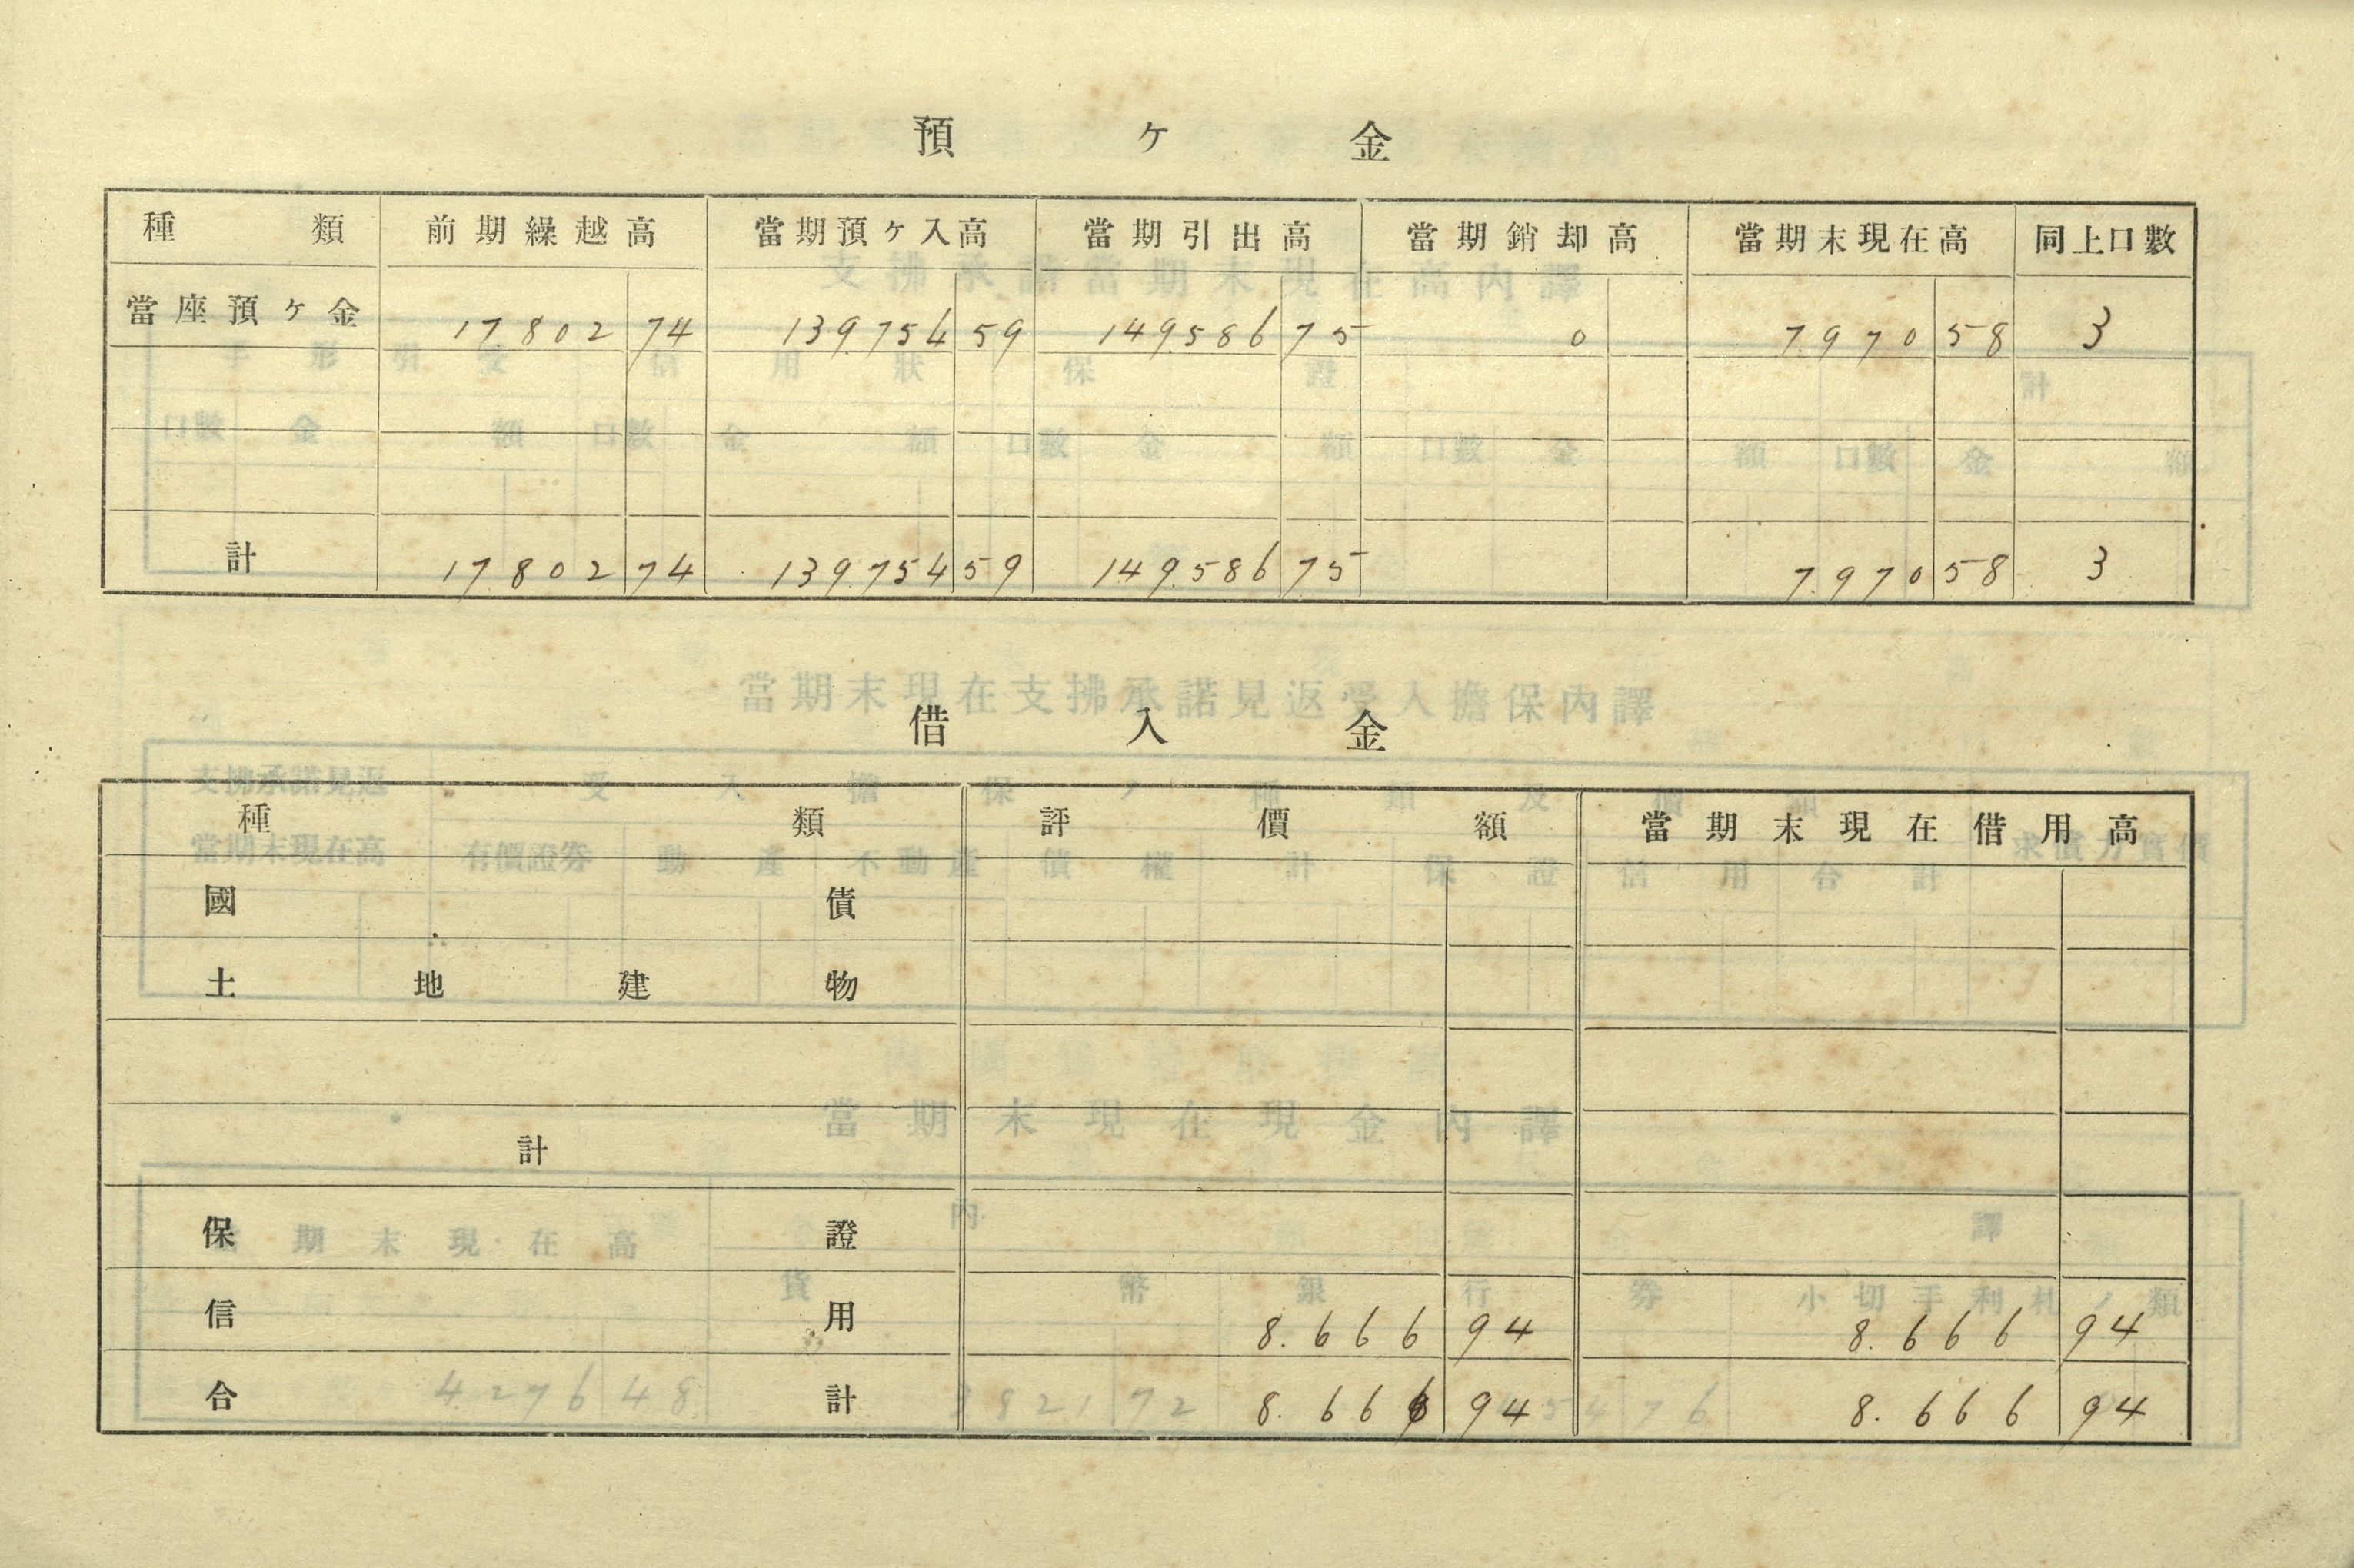 預ケ金
種類 前期繰越高 當期預ケ入高 當期引出高 當期銷却高 當期末現在高 同上口數
當座預ケ金 17.802 74 139.754 59 149.586 75 0 7.970 58 3
計 17.802 74 139.754 59 149.586 75 7.970 58 3
當期末現在支拂承諾見返受入擔保內譯
借入金
種類 評價額 當期末現在借用高
國債
土地建物
當期末現在現金內譯
計
保證
信用 8.666 94 8.666 94
合計 8.666 94 8.666 94